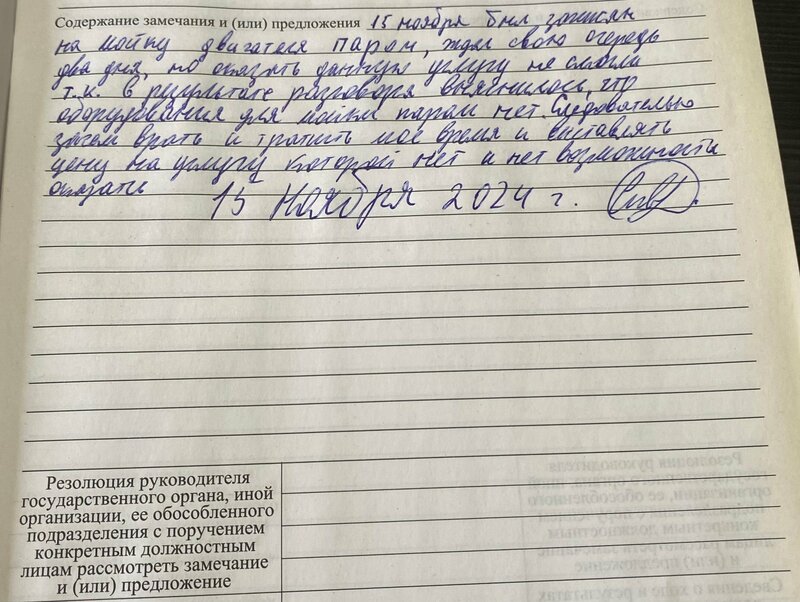 Содержание замечания и (или) предложения 15 ноября был записан
на мойку двигателя паром, ждал свою очередь
два дня, но оказать данную услугу не смогли
т.к. в результате разговора выяснилось, что
оборудования для мойки паром нет. Следовательно
зачем врать и тратить мое время и выставлять
цену на услугу которой нет и нет возможности
оказать
15 ноября 2024 г.
Резолюция руководителя
государственного органа, иной
организации, ее обособленного
подразделения с поручением
конкретным должностным
лицам рассмотреть замечание
и (или) предложение